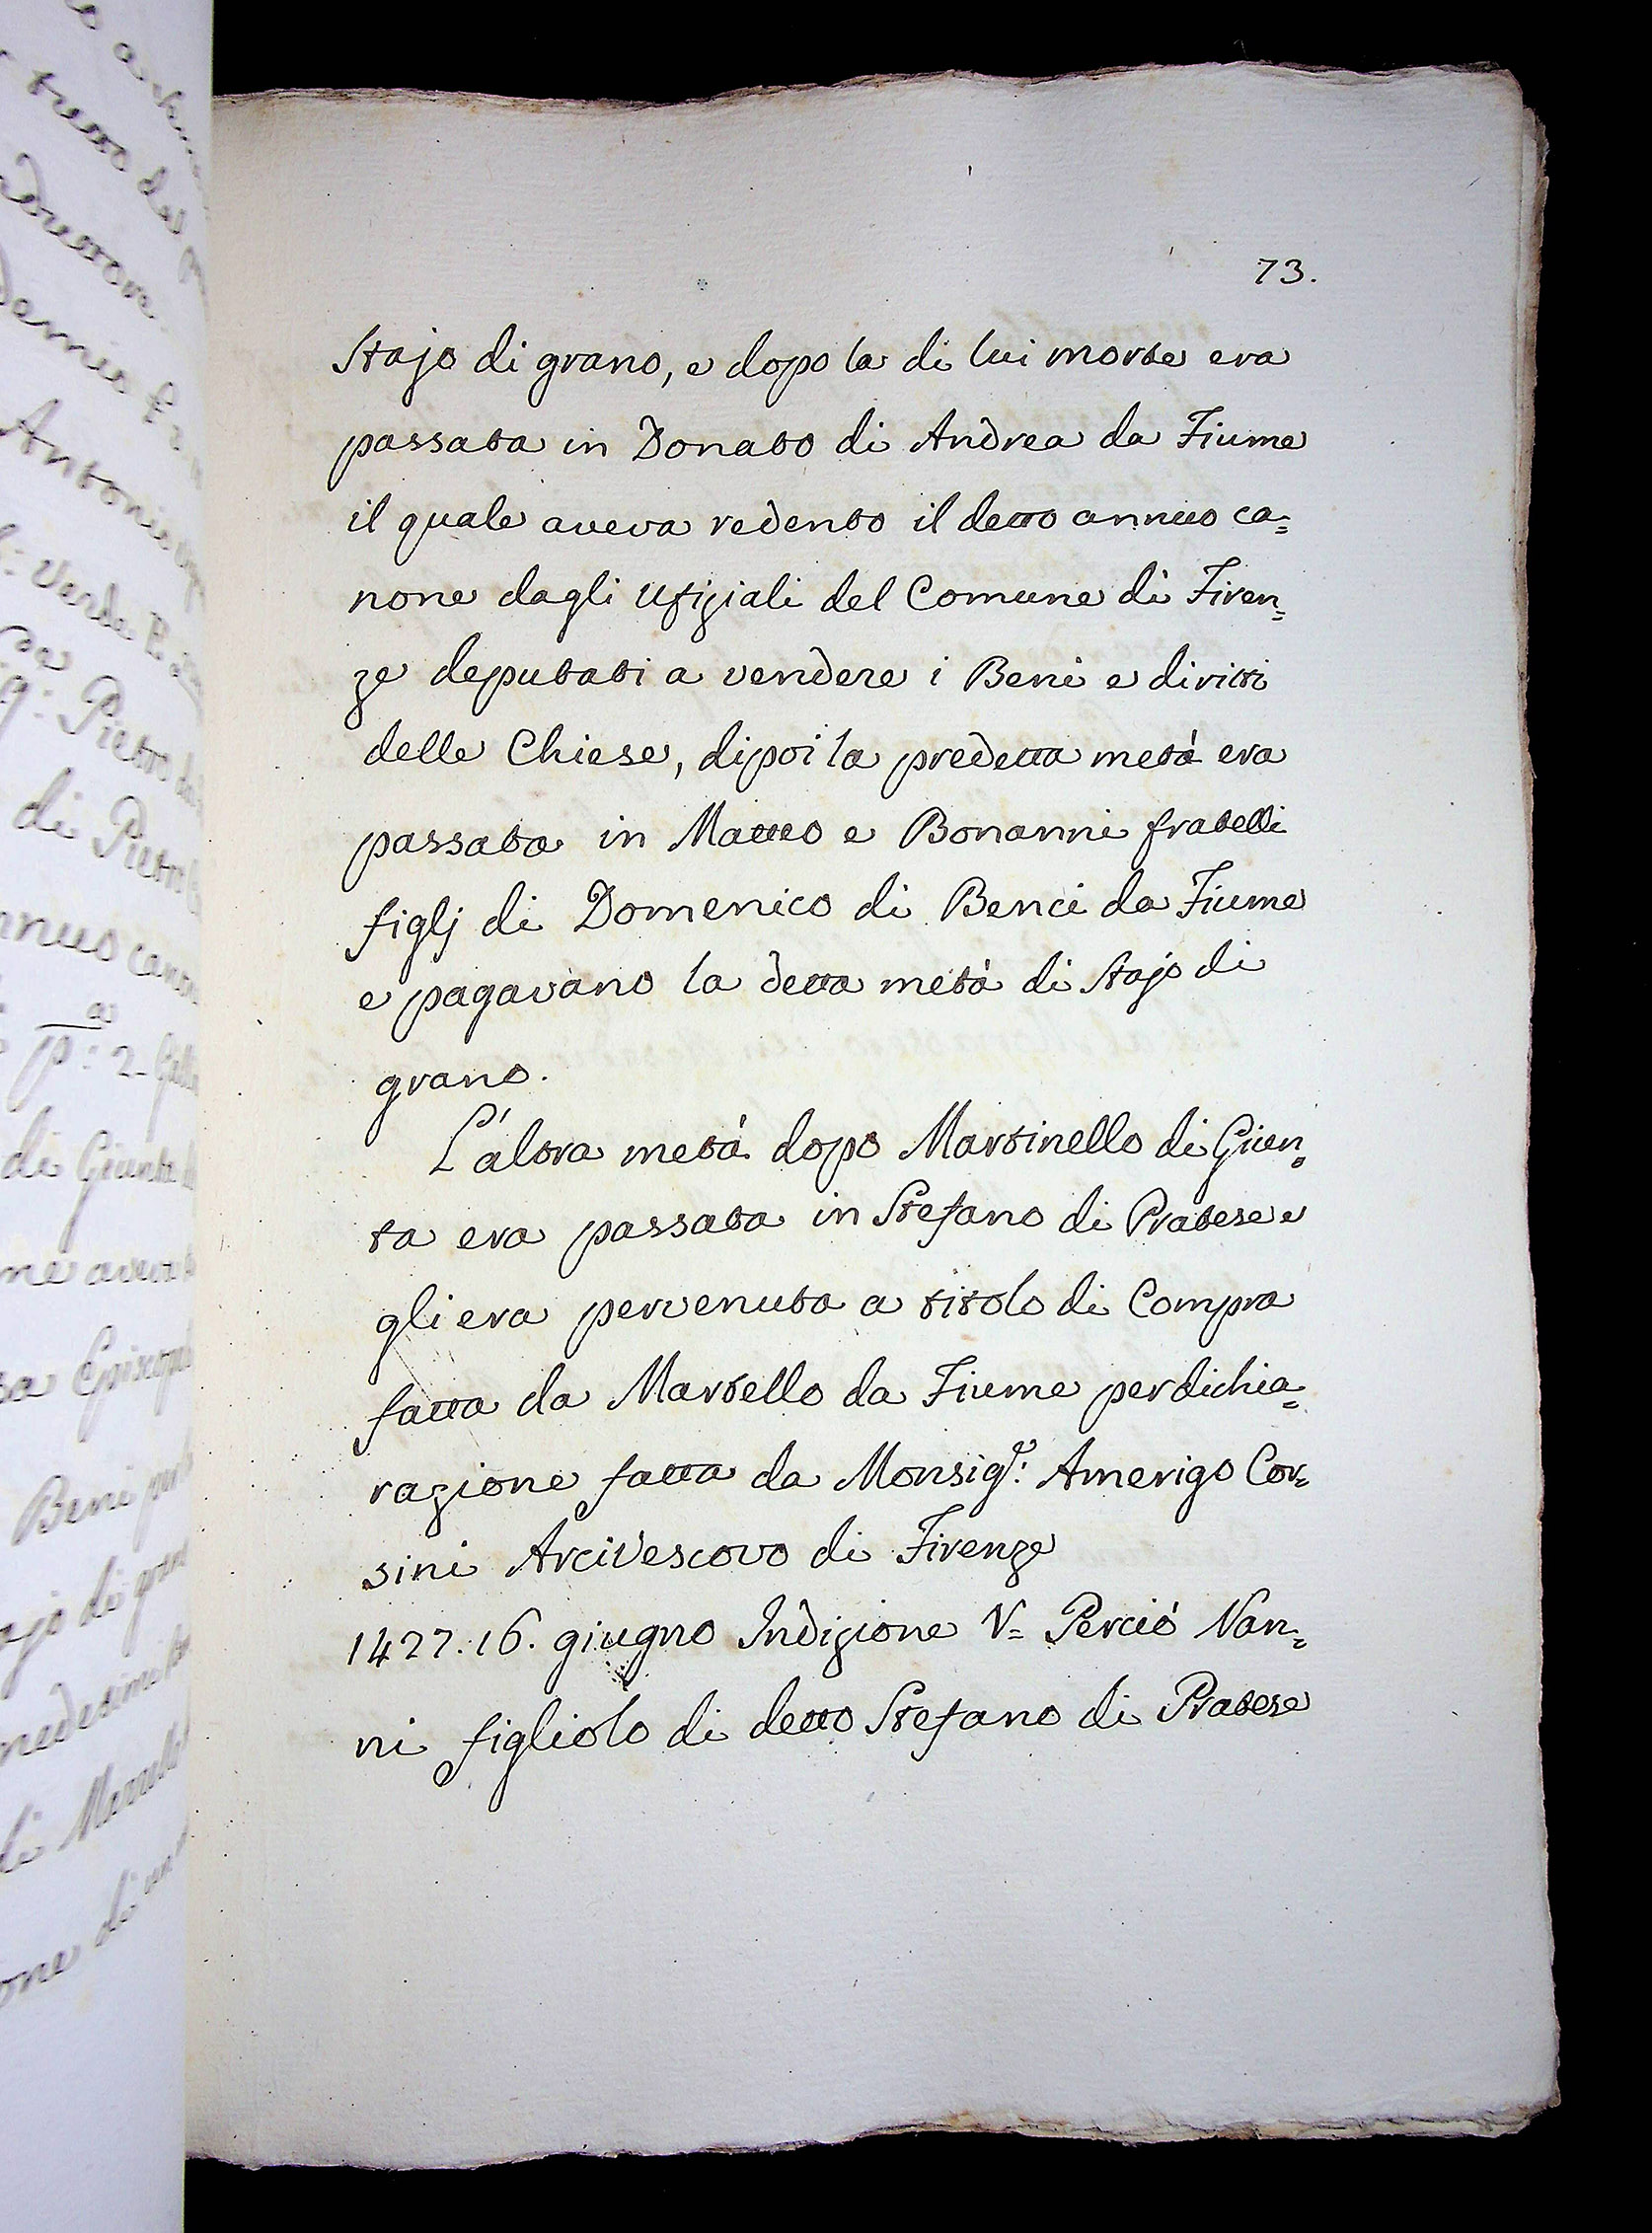 73.
Stajo di grano, e dopo la di lui morte era
passata in Donato di Andrea da Fiume
il quale aveva redento il detto annuo ca=
none dagli Ufiziali del Comune di Firen=
ze deputati a vendere i Beni e diritti
delle Chiese, dipoi la predetta metà era
passata in Matteo e Bonanni fratelli
figlj di Domenico di Benci da Fiume
e pagavano la detta metà di Stajo di
grano.
L'altra metà dopo Martinello di Giun=
ta era passata in Stefano di Pratese e
gli era pervenuta a titolo di Compra
fatta da Martello da Fiume per dichia=
razione fatta da Monsig.r: Amerigo Cor=
sini Arcivescovo di Firenze
1427. 16. giugno Indizione V= Perciò Nan=
ni figliolo di detto Stefano di Pratese